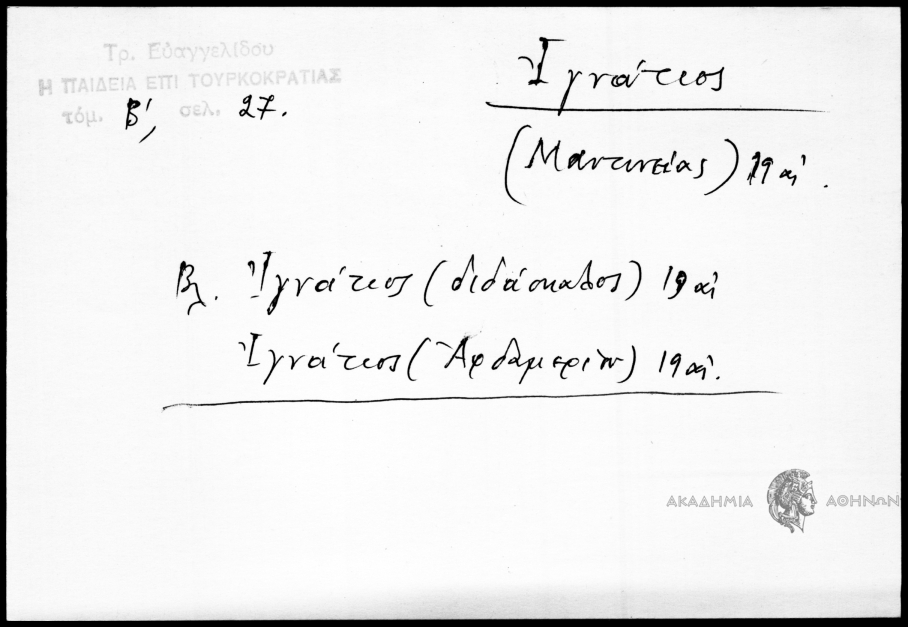 Τρ. Εὐαγγελίδου
Η ΠΑΙΔΕΙΑ ΕΠΙ ΤΟΥΡΚΟΚΡΑΤΙΑΣ
τόμ. Β', σελ. 27.
Ἰγνάτιος
(Μαντινείας) 19 αἰ.
Βλ. Ἰγνάτιος (διδάσκαλος) 19 αἰ
Ἰγνάτιος (Ἀρδαμερίου) 19 αἰ.
ΑΚΑΔΗΜΙΑ ΑΘΗΝΩΝ